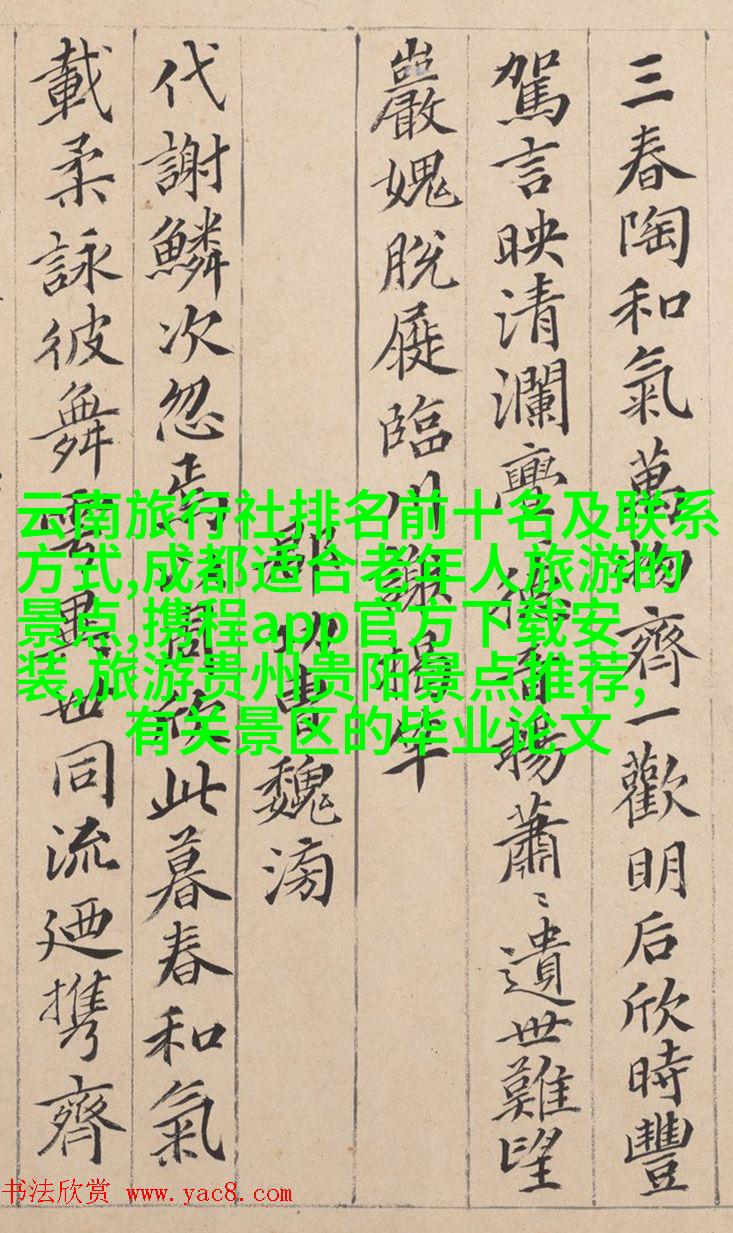 三春陶和氣萬物齊一歡明后欣時豐
駕言映清瀾亹々德音暢蕭々遺世難望
巖愧脫屣臨川謝揭竿
郡功曹魏滂
代謝鱗次忽焉以周欣此暮春和氣
載柔詠彼舞雩異世同流迺携齊
云南旅行社排名前十名及联系
方式,成都适合老年人旅游的
景点,携程app官方下载安
装,旅游贵州贵阳景点推荐,
有关景区的毕业论文
书法欣赏 www.yac8.com